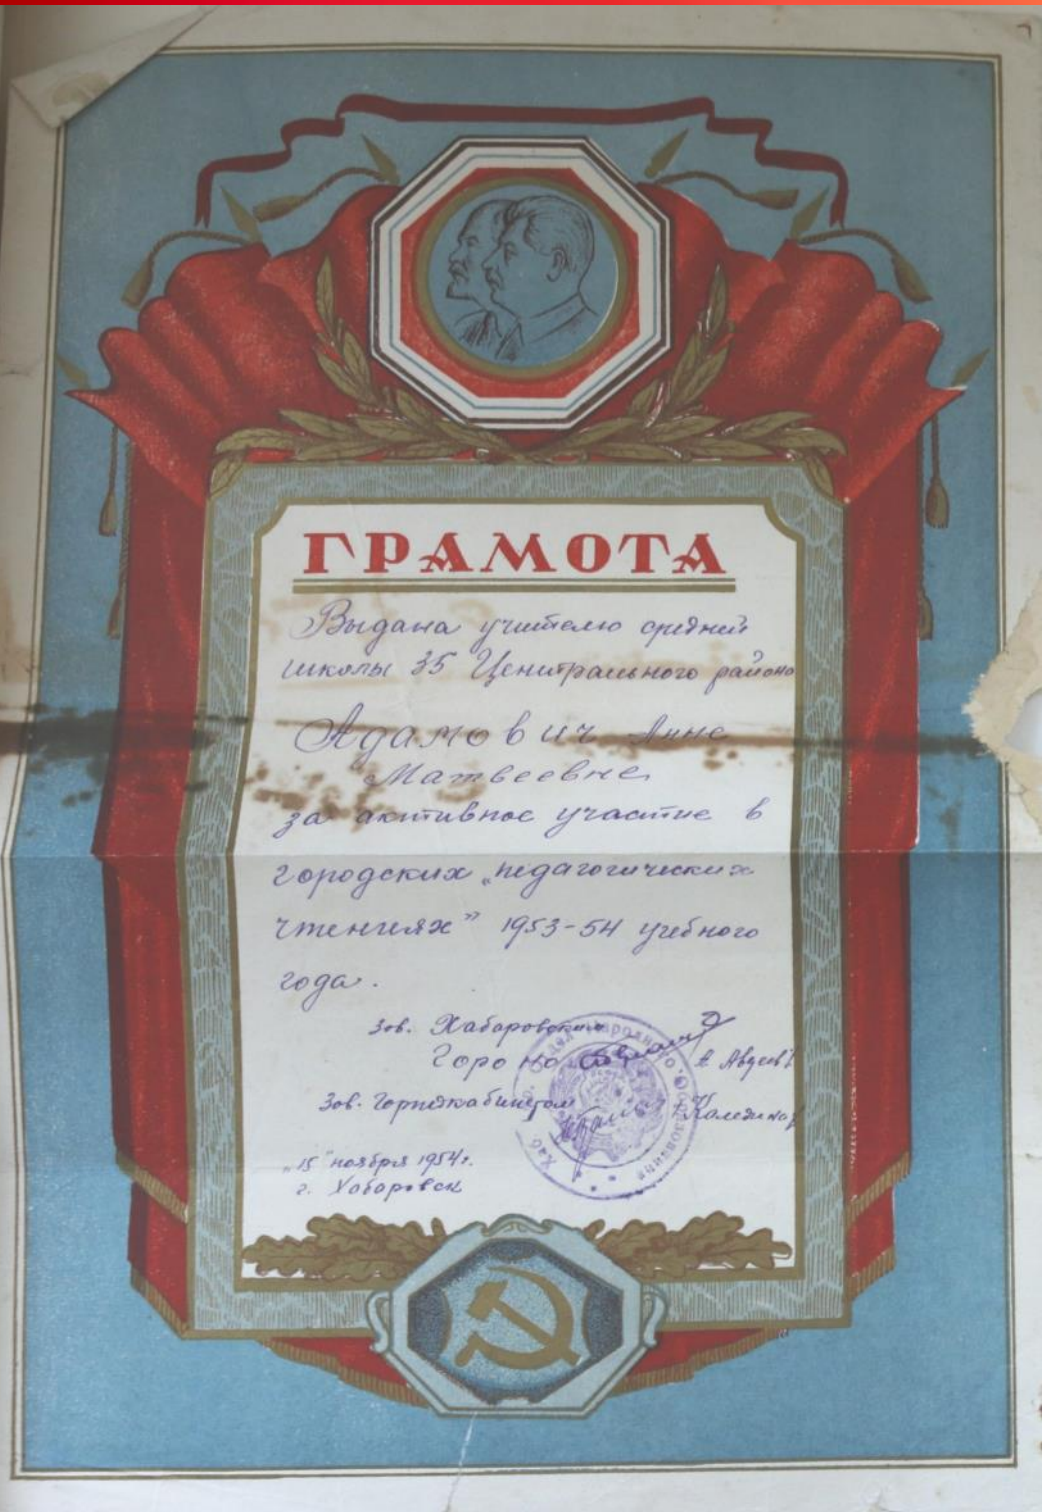 ГРАМОТА
Выдана учителю средней
школы 35 Центрального района
Адамович Анне
Матвеевне
за активное участие в
городских „педагогических
чтениях” 1953-54 учебного
года.
Зав. Хабаровским
Гороно А Авдеев
Зав. горпедкабинетом
„15” ноября 1954 г.
г. Хабаровск
Народного Образования